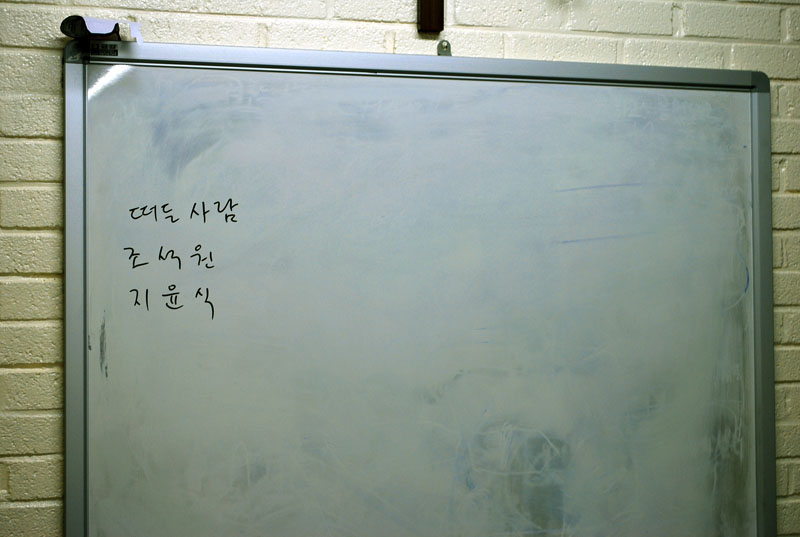 떠든 사람
조석원
지윤식